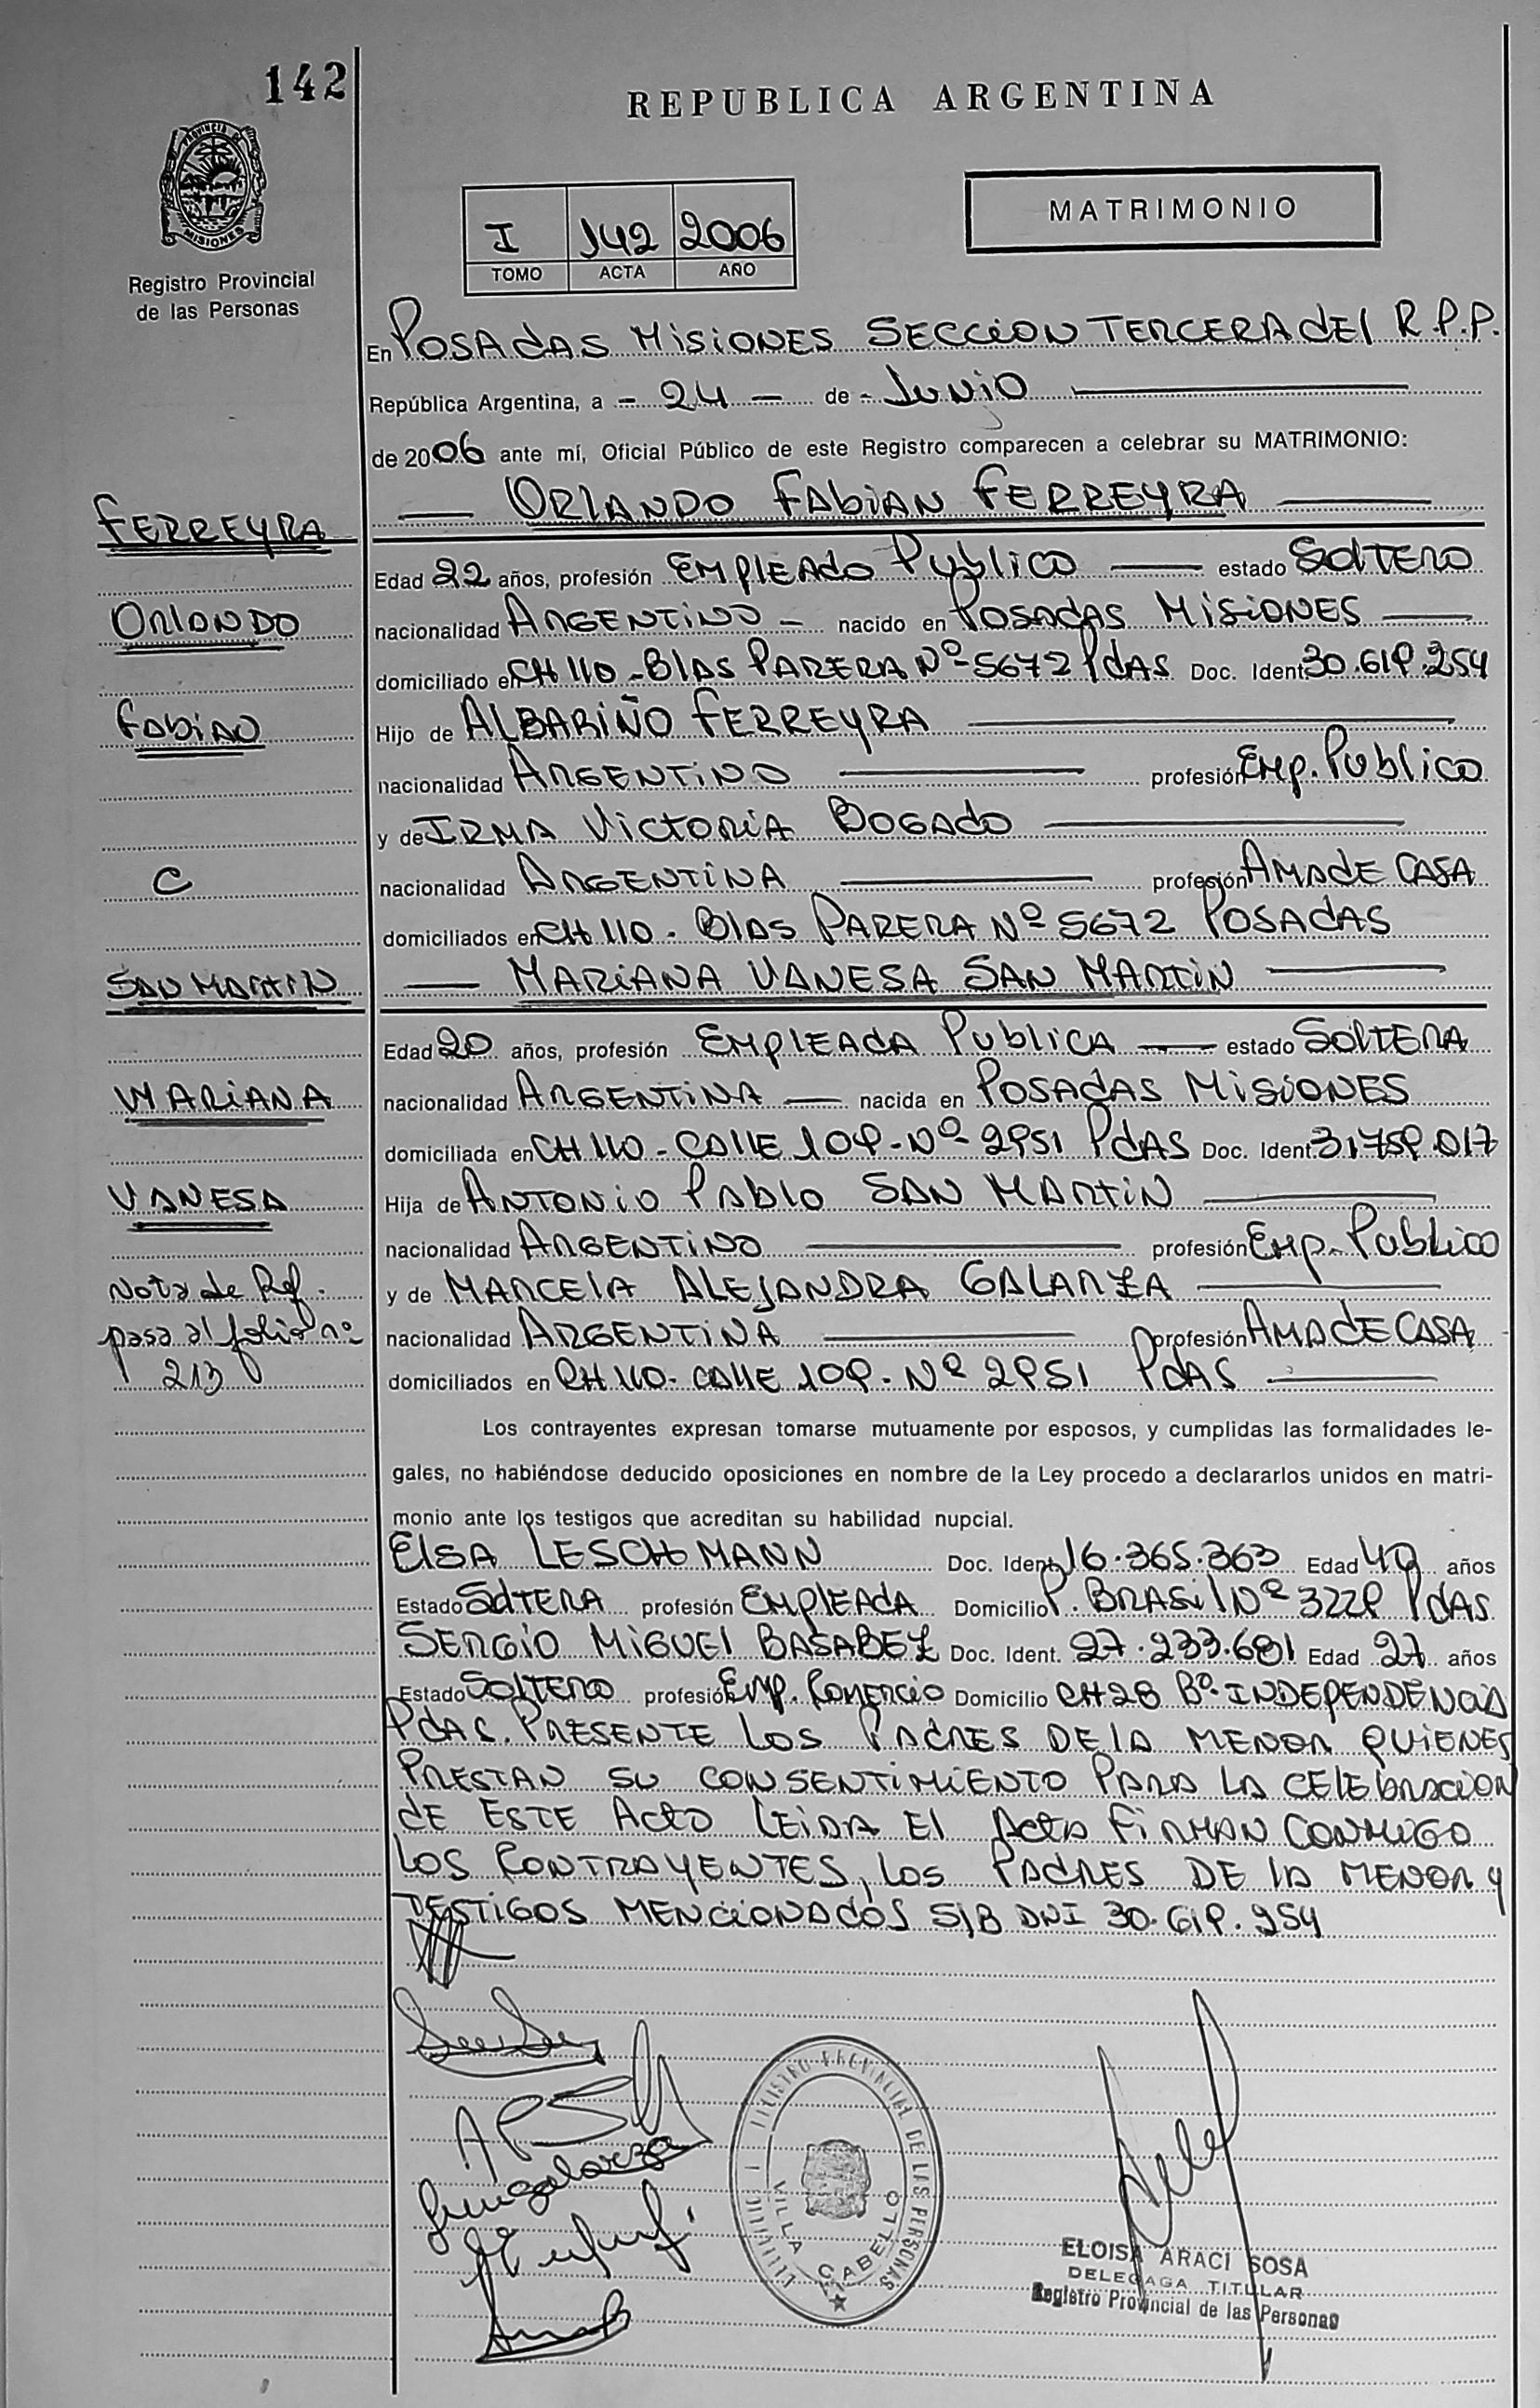 142
REPUBLICA ARGENTINA
PROVINCIA DE
MISIONES
Registro Provincial
de las Personas
I 142 2006
TOMO ACTA AÑO
MATRIMONIO
En POSADAS MISIONES SECCION TERCERA DEL R.P.P.
República Argentina, a - 24 - de - JUNIO
de 2006 ante mí, Oficial Público de este Registro comparecen a celebrar su MATRIMONIO:
FERREYRA
ORLANDO FABIAN FERREYRA
Edad 22 años, profesión EMPLEADO PUBLICO estado SOLTERO
ORLANDO
nacionalidad ARGENTINO - nacido en POSADAS MISIONES
domiciliado en CH 110 - BLAS PARERA Nº 5672 PDAS Doc. Ident. 30.619.254
FABIAN
Hijo de ALBARIÑO FERREYRA
nacionalidad ARGENTINO profesión EMP. PUBLICO
y de IRMA VICTORIA BOGADO
C
nacionalidad ARGENTINA profesión AMA DE CASA
domiciliados en CH 110 - BLAS PARERA Nº 5672 POSADAS
SAN MARTIN
MARIANA VANESA SAN MARTIN
Edad 20 años, profesión EMPLEADA PUBLICA estado SOLTERA
MARIANA
nacionalidad ARGENTINA nacida en POSADAS MISIONES
domiciliada en CH 110 - CALLE 109 - Nº 2951 PDAS Doc. Ident. 31.759.017
VANESA
Hija de ANTONIO PABLO SAN MARTIN
nacionalidad ARGENTINO profesión EMP. PUBLICO
Nota de Ref.
y de MARCELA ALEJANDRA GALARZA
pasa al folio nº
nacionalidad ARGENTINA profesión AMA DE CASA
213
domiciliados en CH 110 - CALLE 109 - Nº 2951 PDAS
Los contrayentes expresan tomarse mutuamente por esposos, y cumplidas las formalidades le-
gales, no habiéndose deducido oposiciones en nombre de la Ley procedo a declararlos unidos en matri-
monio ante los testigos que acreditan su habilidad nupcial.
ELSA LESCHMANN Doc. Ident. 16.365.363 Edad años
Estado SOLTERA profesión EMPLEADA Domicilio P. BRASIL Nº 3229 PDAS
SERGIO MIGUEL BASABEZ Doc. Ident. 27.233.681 Edad 27 años
Estado SOLTERO profesión EMP. COMERCIO Domicilio CH 28 Bº INDEPENDENCIA
PDAS. PRESENTE LOS PADRES DE LA MENOR QUIENES
PRESTAN SU CONSENTIMIENTO PARA LA CELEBRACION
DE ESTE ACTO LEIDA EL ACTA FIRMAN CONMIGO
LOS CONTRAYENTES, LOS PADRES DE LA MENOR Y
TESTIGOS MENCIONADOS S/B DNI 30.619.954
REGISTRO PROVINCIAL DE LAS PERSONAS
VILLA CABELLO
ELOISA ARACI SOSA
DELEGADA TITULAR
Registro Provincial de las Personas